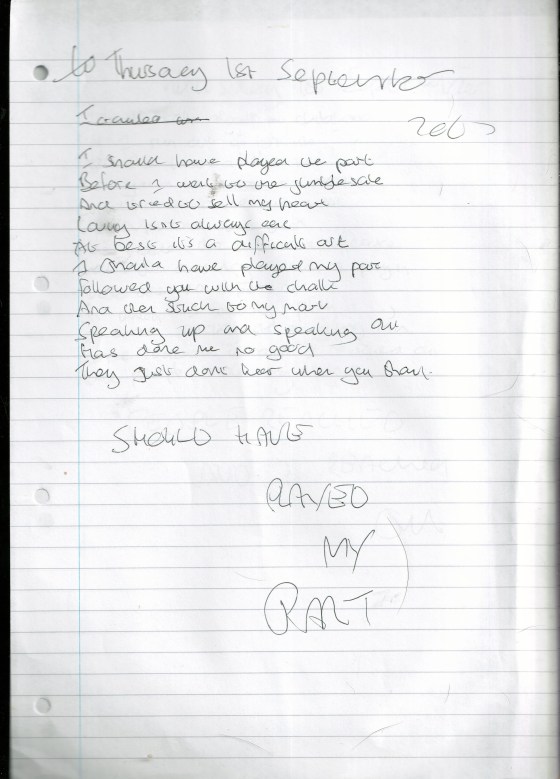 Thursday 1st September
I crawled
2005
I should have played the part
Before I went to the jumble sale
And tried to sell my heart
Loving isn't always
At best it's a difficult art
I should have played my part
Followed you with the chalk
And then stuck to my mark
Speaking up and speaking out
Has done me no good
They just don't hear when you shout.
SHOULD HAVE
PLAYED
MY
PART